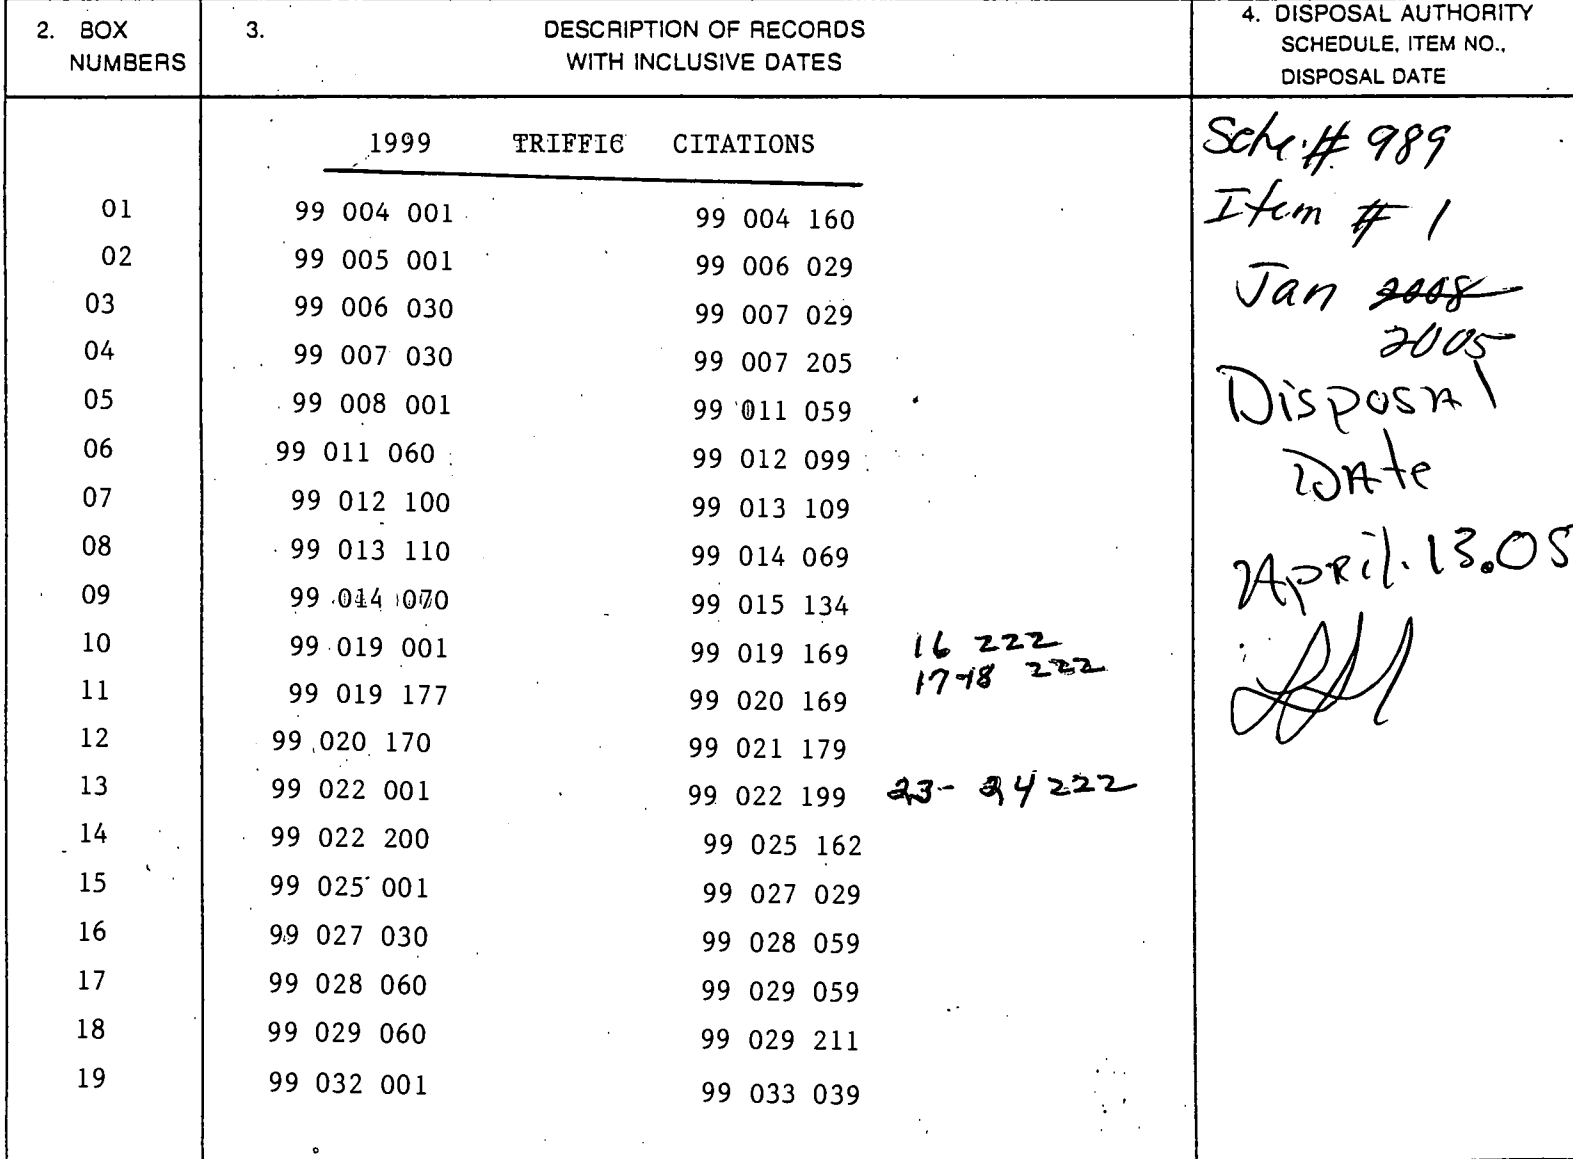 2. BOX NUMBERS
3. DESCRIPTION OF RECORDS WITH INCLUSIVE DATES
4. DISPOSAL AUTHORITY SCHEDULE, ITEM NO., DISPOSAL DATE
1999 TRIFFIC CITATIONS
01 99 004 001 99 004 160
02 99 005 001 99 006 029
03 99 006 030 99 007 029
04 99 007 030 99 007 205
05 99 008 001 99 011 059
06 99 011 060 99 012 099
07 99 012 100 99 013 109
08 99 013 110 99 014 069
09 99 014 070 99 015 134
10 99 019 001 99 019 169 16 222
17-18 222
11 99 019 177 99 020 169
12 99 020 170 99 021 179
13 99 022 001 99 022 199 23- 24 222
14 99 022 200 99 025 162
15 99 025 001 99 027 029
16 99 027 030 99 028 059
17 99 028 060 99 029 059
18 99 029 060 99 029 211
19 99 032 001 99 033 039
Sche.# 989
Item # 1
Jan 2008
2005
Disposal
Date
April. 13.05